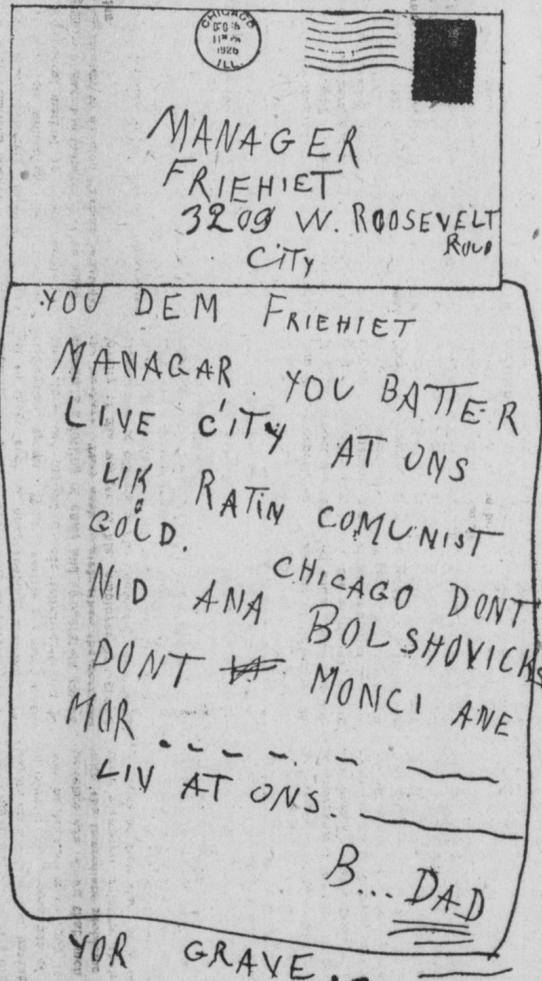 CHICAGO
1926
ILL.
MANAGER
FRIEHIET
3209 W. ROOSEVELT
CITY
YOU DEM FRIEHIET
MANAGAR YOU BATTER
LIVE CITY AT ONS
LIK RATIN COMUNIST
GOLD. CHICAGO DONT
NID ANA BOLSHOVICKS
DONT MONCI ANE
MOR
LIV AT ONS.
B... DAD
YOR GRAVE.